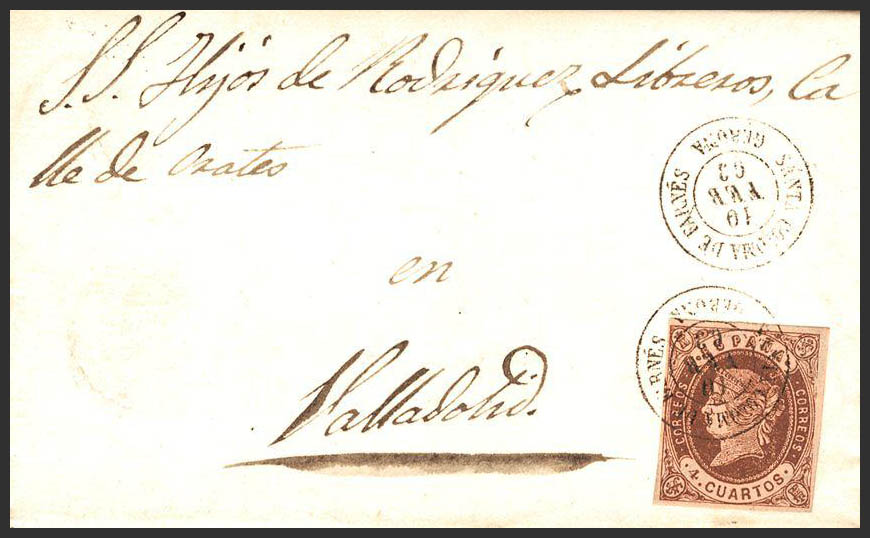 S.S. Hijos de Rodriguez, Libreros, Ca
lle de Orates
en
Valladolid.
SANTA COLOMA DE FARNÉS
GERONA
10
63
ESPAÑA
CORREOS
CORREOS
4 CUARTOS